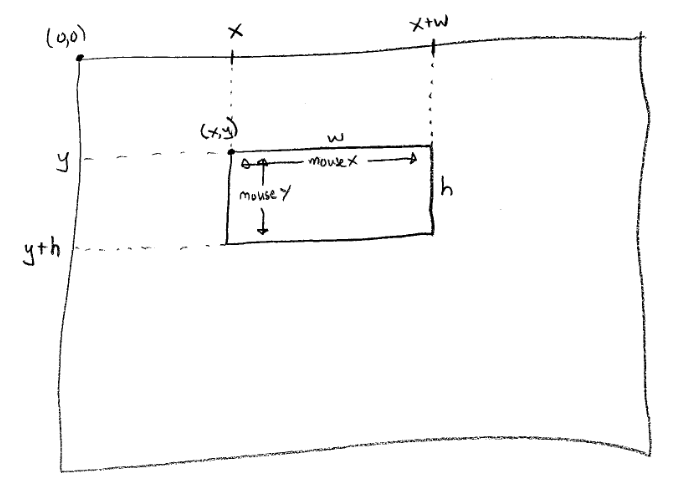 (0,0)
x
x+w
(x,y)
w
y
mouseX
mouseY
h
y+h